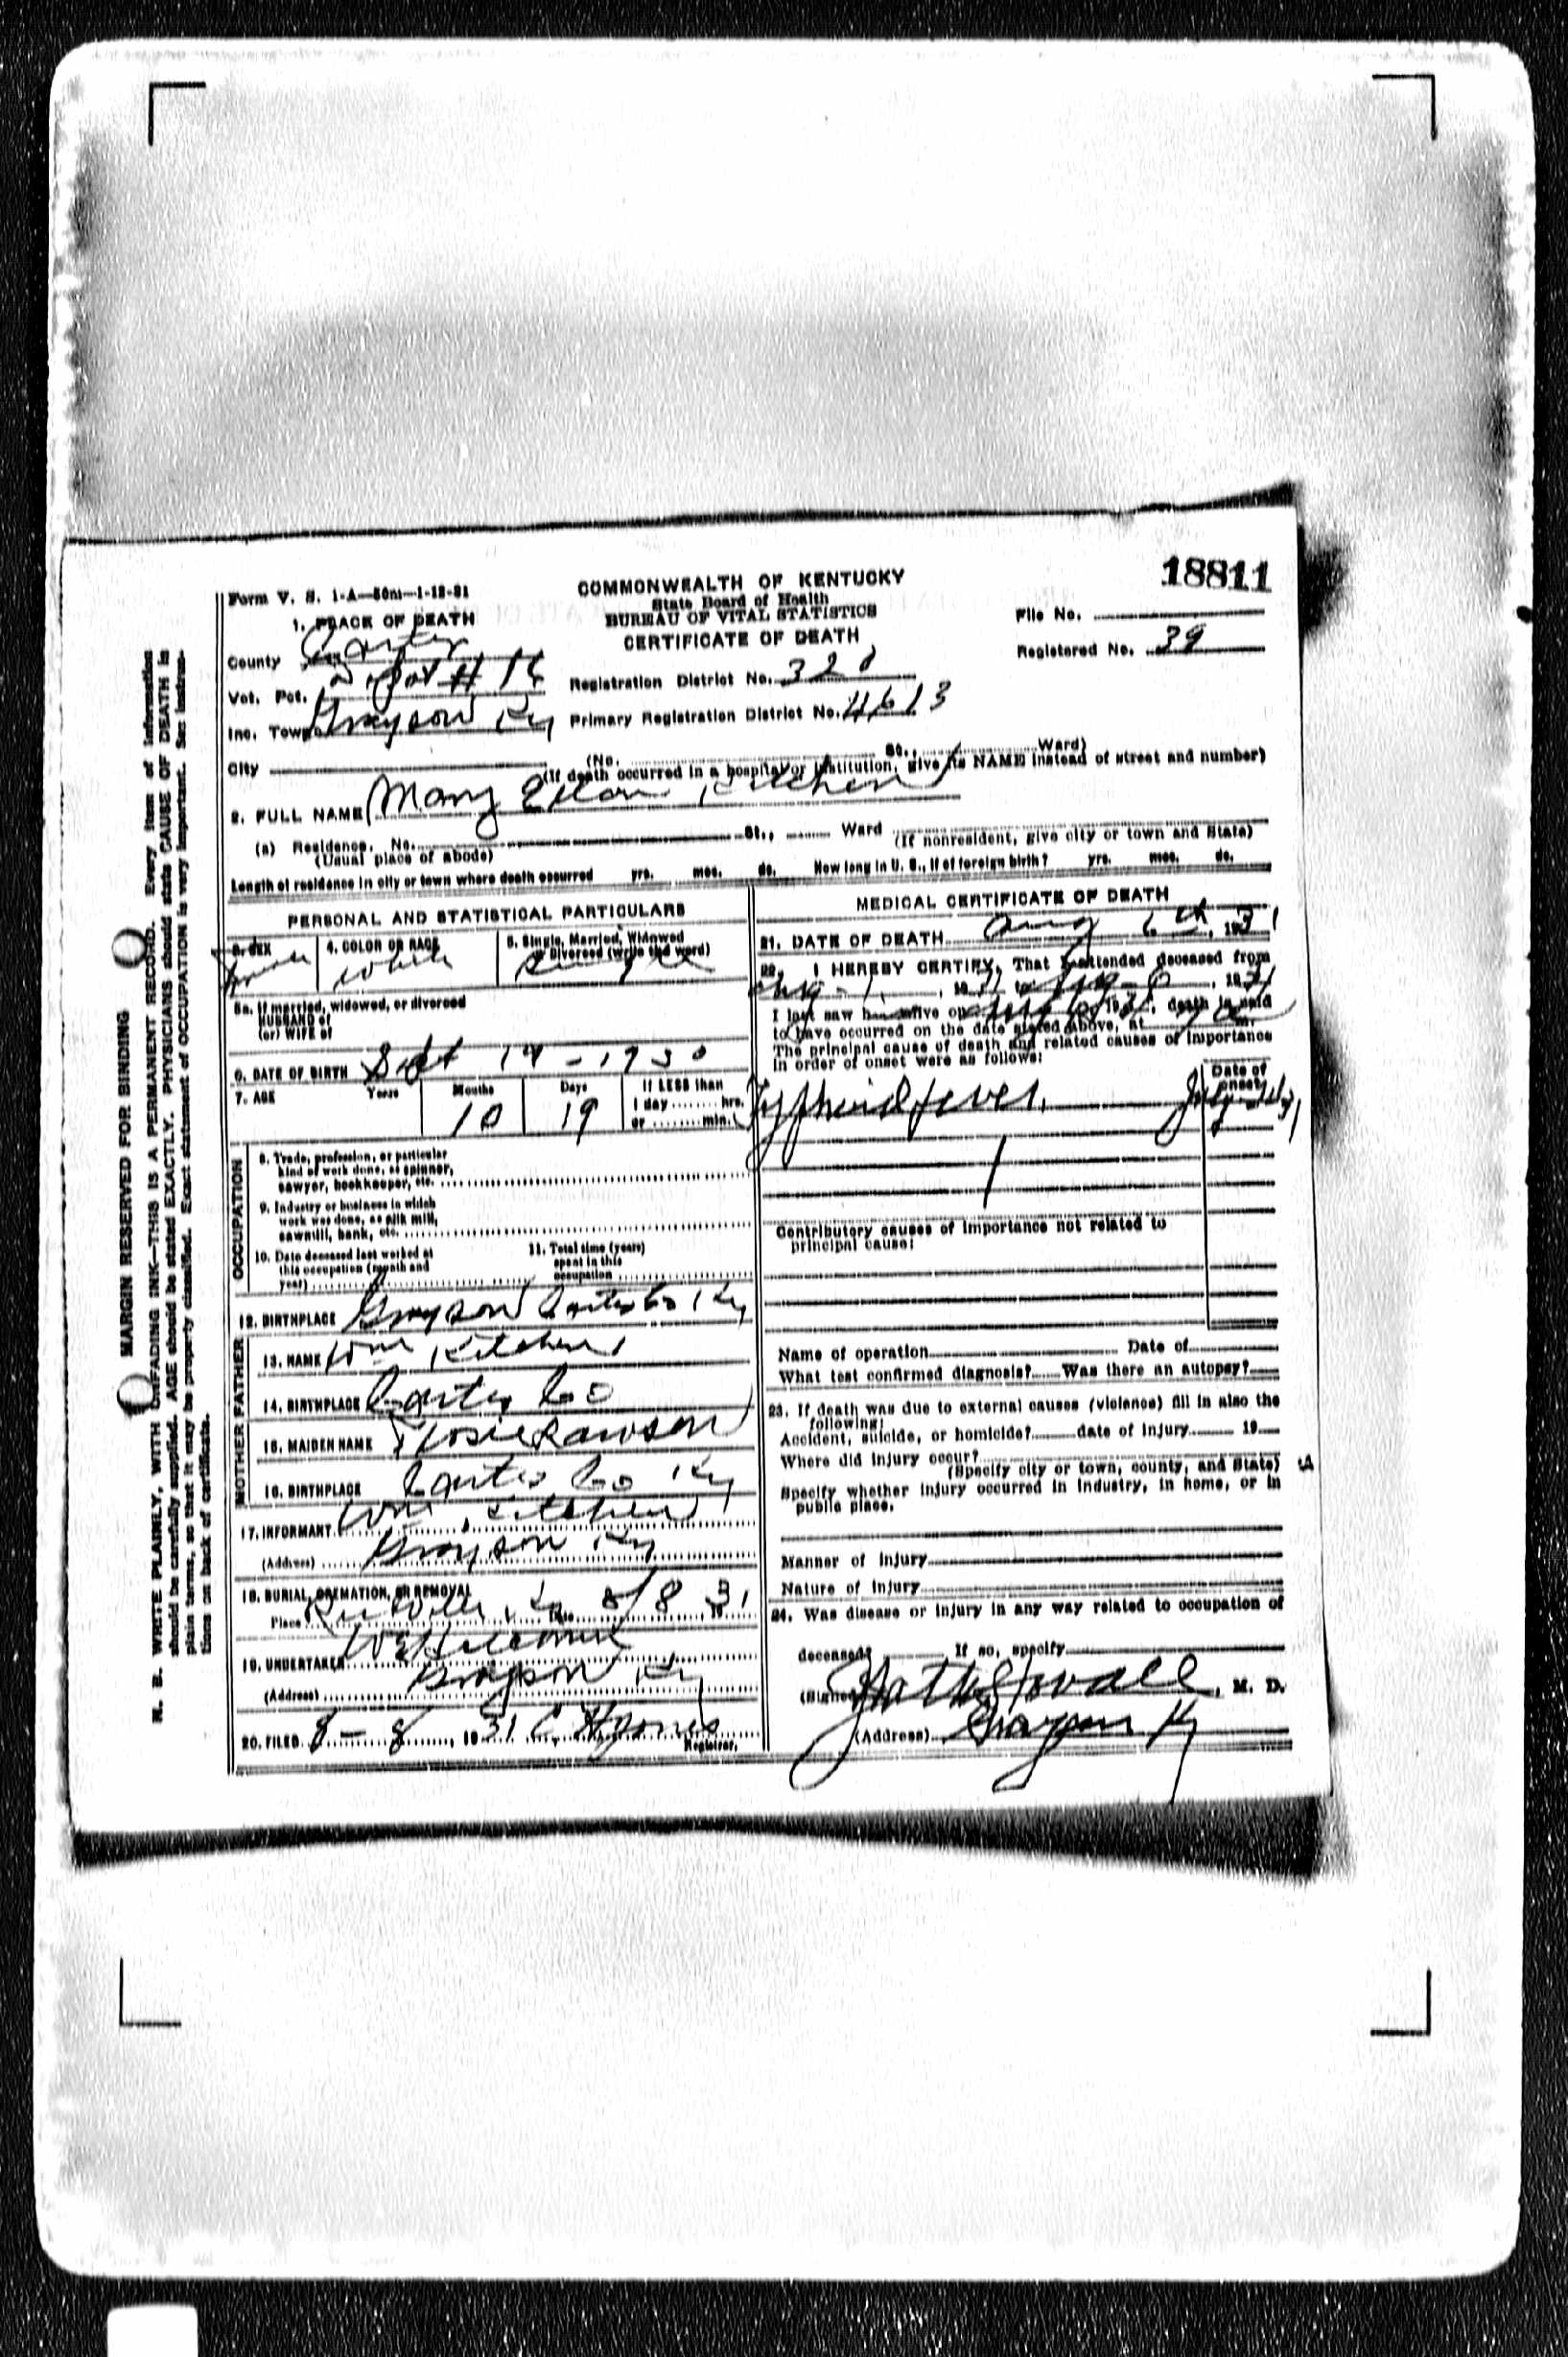 18811
Form V. S. 1-A—50m—1-12-31
COMMONWEALTH OF KENTUCKY
State Board of Health
BUREAU OF VITAL STATISTICS
CERTIFICATE OF DEATH
File No.
Registered No. 39
1. PLACE OF DEATH
County Carter
Vot. Pct. # 16
Registration District No. 320
Inc. Town Grayson Ky
Primary Registration District No. 4613
City (No. St., Ward)
(If death occurred in a hospital or institution, give its NAME instead of street and number)
2. FULL NAME Mary Kitchen
(a) Residence. No. St., Ward
(Usual place of abode) (If nonresident, give city or town and State)
Length of residence in city or town where death occurred yrs. mos. ds. How long in U. S., if of foreign birth? yrs. mos. ds.
PERSONAL AND STATISTICAL PARTICULARS
3. SEX
4. COLOR OR RACE White
5. Single, Married, Widowed or Divorced (write the word) Single
5a. If married, widowed, or divorced
HUSBAND of
(or) WIFE of
6. DATE OF BIRTH Sept 17 - 1930
7. AGE Years Months 10 Days 19 If LESS than
1 day hrs.
or min.
OCCUPATION
8. Trade, profession, or particular
kind of work done, as spinner,
sawyer, bookkeeper, etc.
9. Industry or business in which
work was done, as silk mill,
sawmill, bank, etc.
10. Date deceased last worked at
this occupation (month and
year)
11. Total time (years)
spent in this
occupation
12. BIRTHPLACE Grayson Carter Co Ky
FATHER
13. NAME Wm Kitchen
14. BIRTHPLACE Carter Co
MOTHER
15. MAIDEN NAME
16. BIRTHPLACE Carter Co Ky
17. INFORMANT Wm Kitchen
(Address) Grayson Ky
18. BURIAL, CREMATION, OR REMOVAL
Place Ky Date 8/8 1931
19. UNDERTAKER
(Address) Grayson Ky
20. FILED 8-8, 1931 Registrar.
MEDICAL CERTIFICATE OF DEATH
21. DATE OF DEATH Aug 6th, 1931
22. I HEREBY CERTIFY, That I attended deceased from
Aug - 1, 1931 to Aug - 6, 1931
I last saw h alive on Aug 6, 1931, death is said
to have occurred on the date stated above, at 7 a m.
The principal cause of death and related causes of importance
in order of onset were as follows:
Date of onset
Typhoid fever. July
Contributory causes of importance not related to
principal cause:
Name of operation Date of
What test confirmed diagnosis? Was there an autopsy?
23. If death was due to external causes (violence) fill in also the
following:
Accident, suicide, or homicide? date of injury 19
Where did injury occur?
(Specify city or town, county, and State)
Specify whether injury occurred in industry, in home, or in
public place.
Manner of injury
Nature of injury
24. Was disease or injury in any way related to occupation of
deceased? If so, specify
(Signed) Stovall, M. D.
(Address) Grayson Ky
MARGIN RESERVED FOR BINDING
N. B. WRITE PLAINLY, WITH UNFADING INK—THIS IS A PERMANENT RECORD. Every item of information
should be carefully supplied. AGE should be stated EXACTLY. PHYSICIANS should state CAUSE OF DEATH in
plain terms, so that it may be properly classified. Exact statement of OCCUPATION is very important. See instruc-
tions on back of certificate.